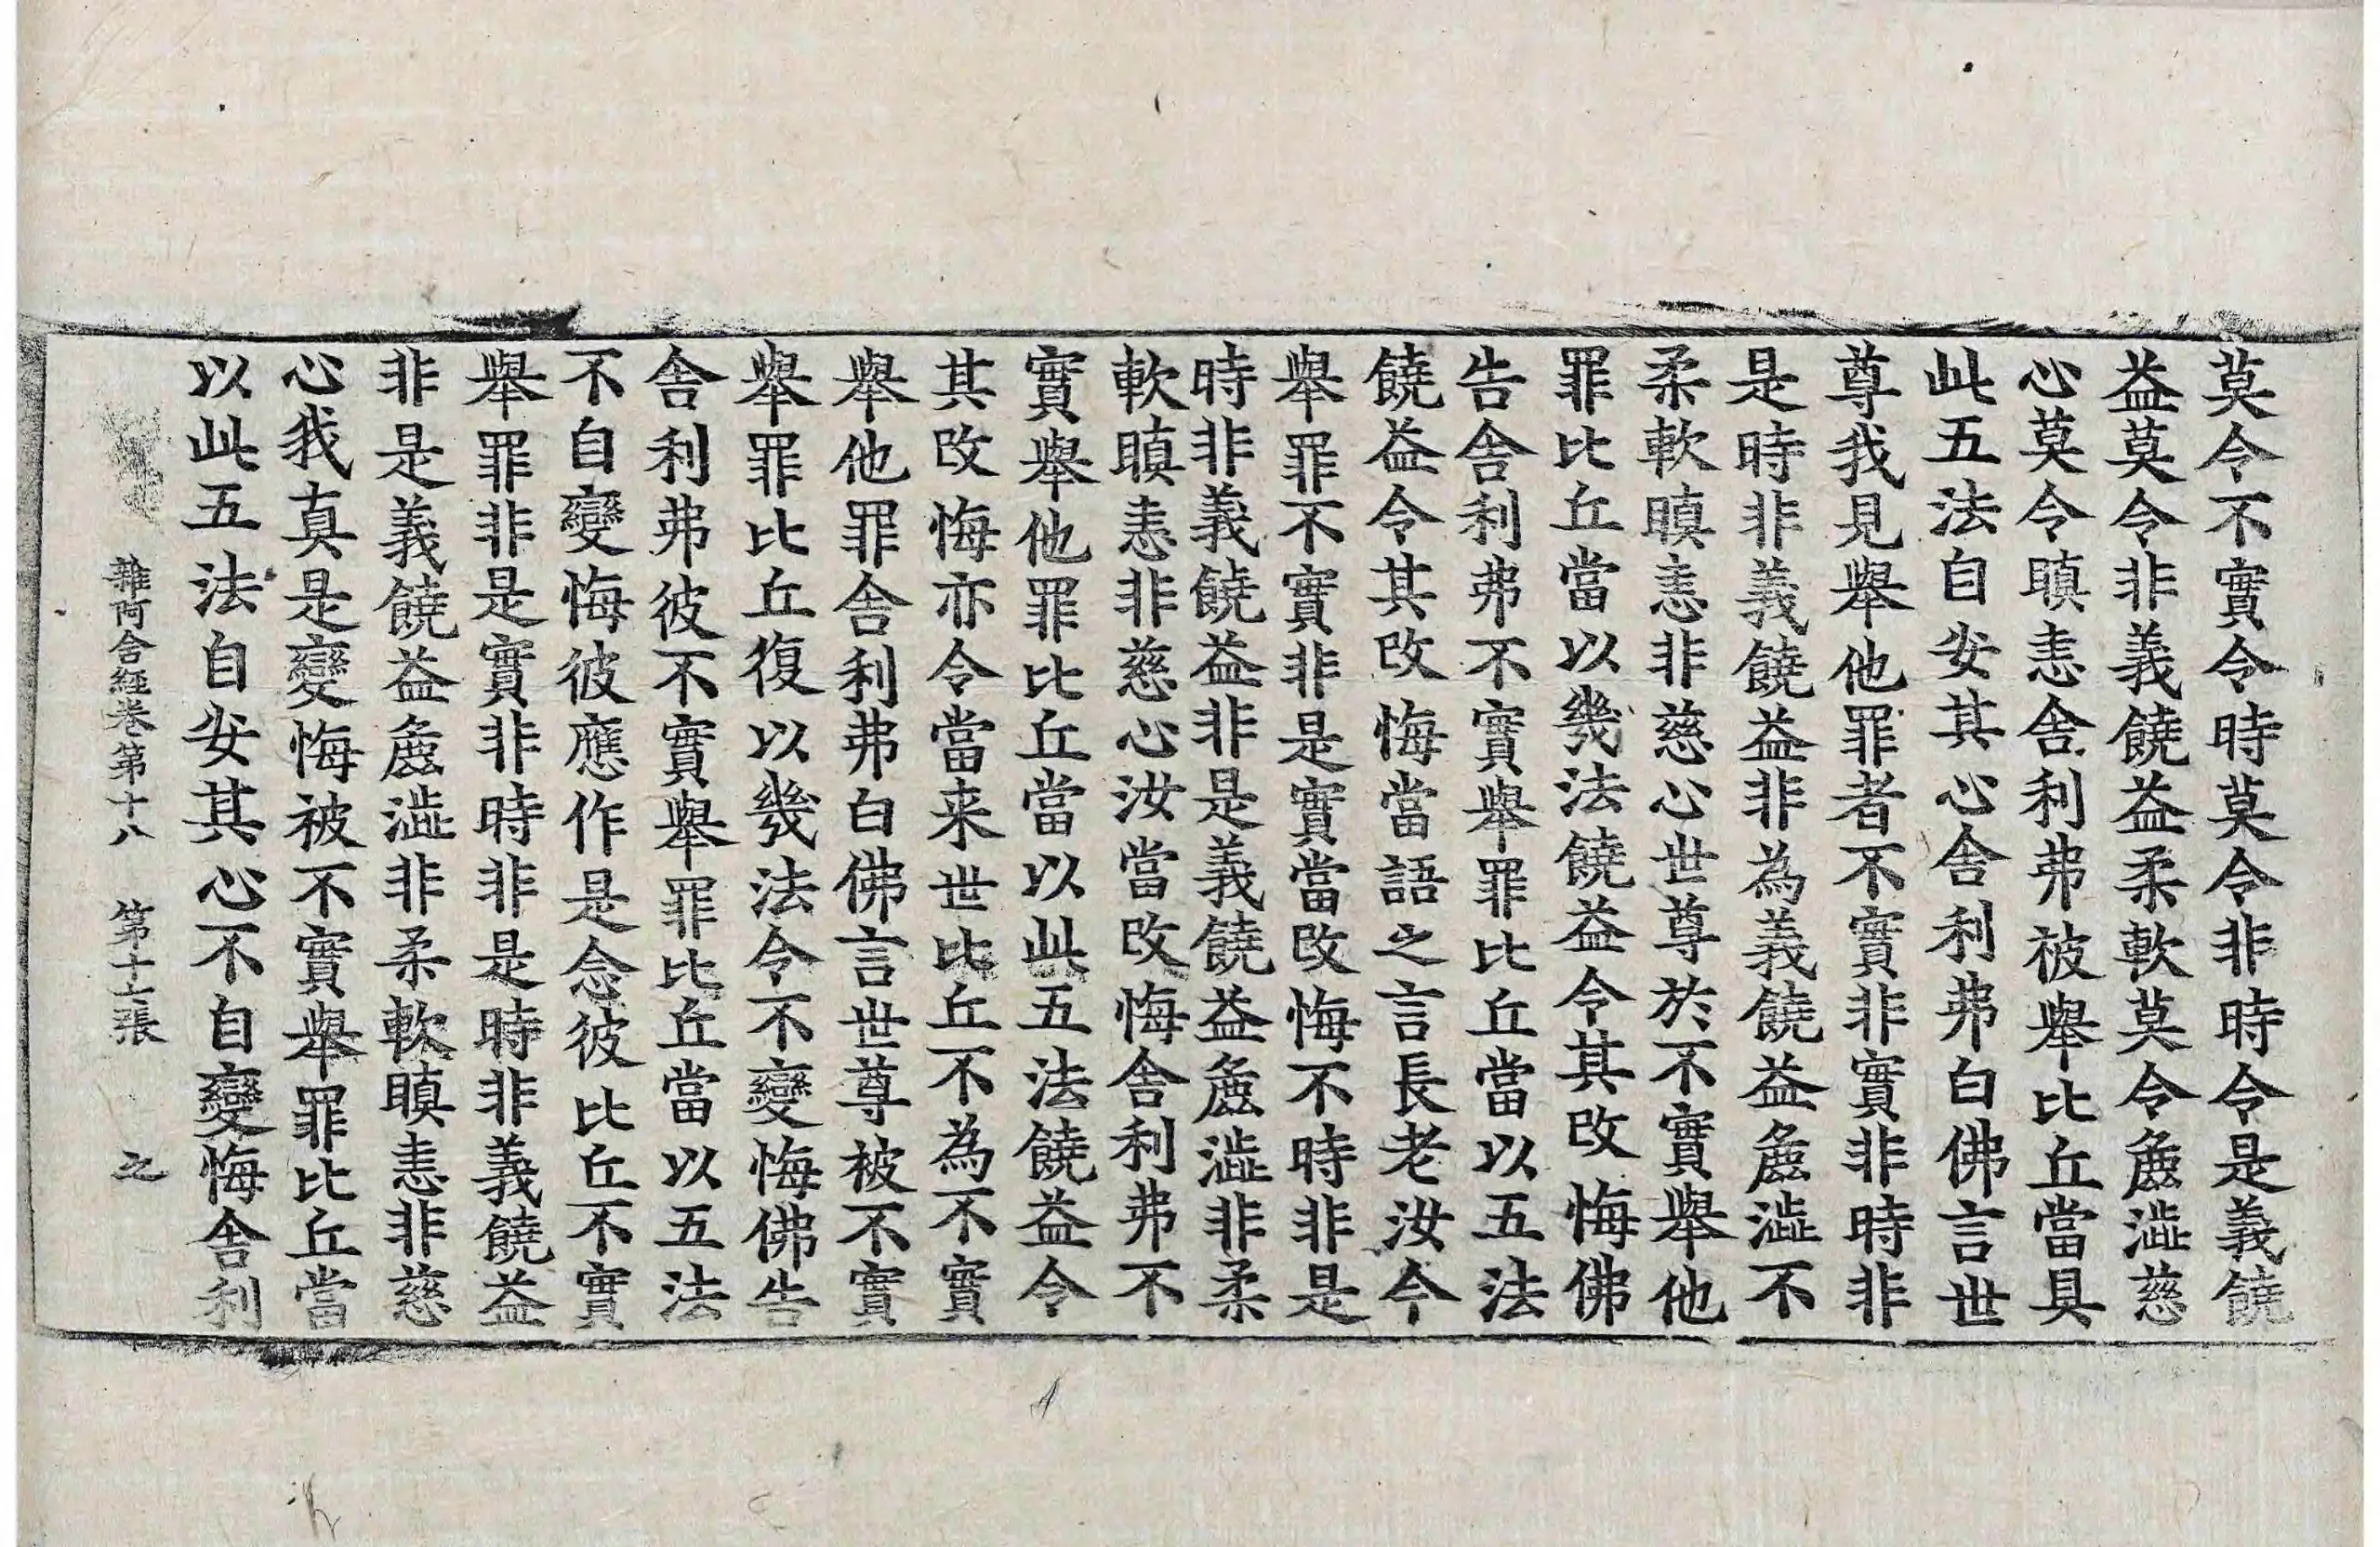 莫令不實令時莫令非時令是義饒
益莫令非義饒益柔軟莫令麁澁慈
心莫令瞋恚舍利弗被舉比丘當具
此五法自安其心舍利弗白佛言世
尊我見舉他罪者不實非實非時非
是時非義饒益非為義饒益麁澁不
柔軟瞋恚非慈心世尊於不實舉他
罪比丘當以幾法饒益令其改悔佛
告舍利弗不實舉罪比丘當以五法
饒益令其改悔當語之言長老汝今
舉罪不實非是實當改悔不時非是
時非義饒益非是義饒益麁澁非柔
軟瞋恚非慈心汝當改悔舍利弗不
實舉他罪比丘當以此五法饒益令
其改悔亦令當来世比丘不為不實
舉他罪舍利弗白佛言世尊被不實
舉罪比丘復以幾法令不變悔佛告
舍利弗彼不實舉罪比丘當以五法
不自變悔彼應作是念彼比丘不實
舉罪非是實非時非是時非義饒益
非是義饒益麁澁非柔軟瞋恚非慈
心我真是變悔被不實舉罪比丘當
以此五法自安其心不自變悔舍利
雜阿含經卷第十八 第十一張 之